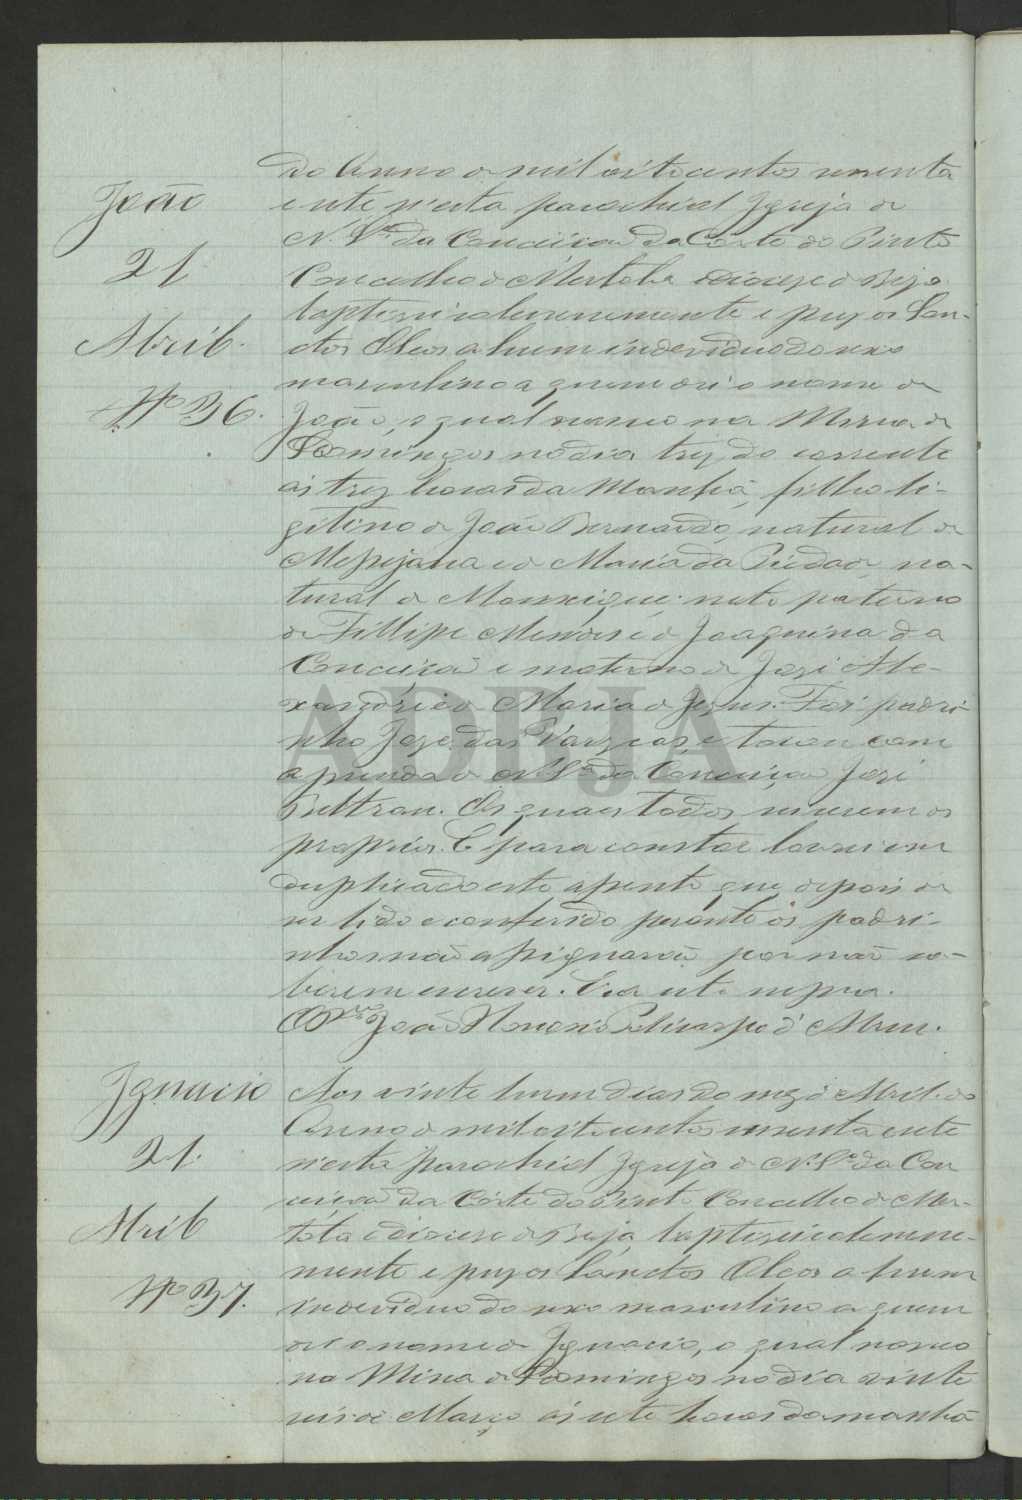 João
21
Abril.
Nº 36.
do Anno de mil oitocentos sessenta
e sete n'esta parochial Igreja de
N. Sª da Conceicão da Corte do Pinto
Concelho de Mertola Diocese de Beja
baptisei solemnemente e puz os San-
ctos Oleos a hum individuo do sexo
masculino a quem dei o nome de
João, o qual nasceo na Mina de
S. Domingos no dia trez do corrente
ás trez horas da Manhã, filho le-
gitimo de João Bernardo, natural de
Messejana e de Maria da Piedade, na-
tural de Monxique: neto paterno
de Fillipe Mendes e de Joaquina da
Conceição e materno de José Ale-
xandre e de Maria de Jezus. Foi padri-
nho Joze das Vargeas, e tocou com
a prenda de N. Sª da Conceição José
Beltran. Os quaes todos serem os
proprios. E para constar lavrei em
duplicado este assento que, depois de
ser lido e conferido perante os padri-
nhos não assignarão por não sa-
berem escrever. Era ut supra.
João Honorio Policarpo d'
Ignacio
21.
Abril
Nº 37.
Aos vinte hum dias do mez d'Abril do
Anno de mil oitocentos sessenta e sete
n'esta parochial Igreja de N. Sª da Con
ceição da Côrte do Pinto Concelho de Mer-
tola e diocese de Beja, baptisei solemne-
mente e puz os Sanctos Oleos a hum
individuo do sexo masculino a quem
dei o nome de Ignacio, o qual nasceo
na Mina de S. Domingos no dia vinte
seis de Março ás sete horas da manhã
ADBJA